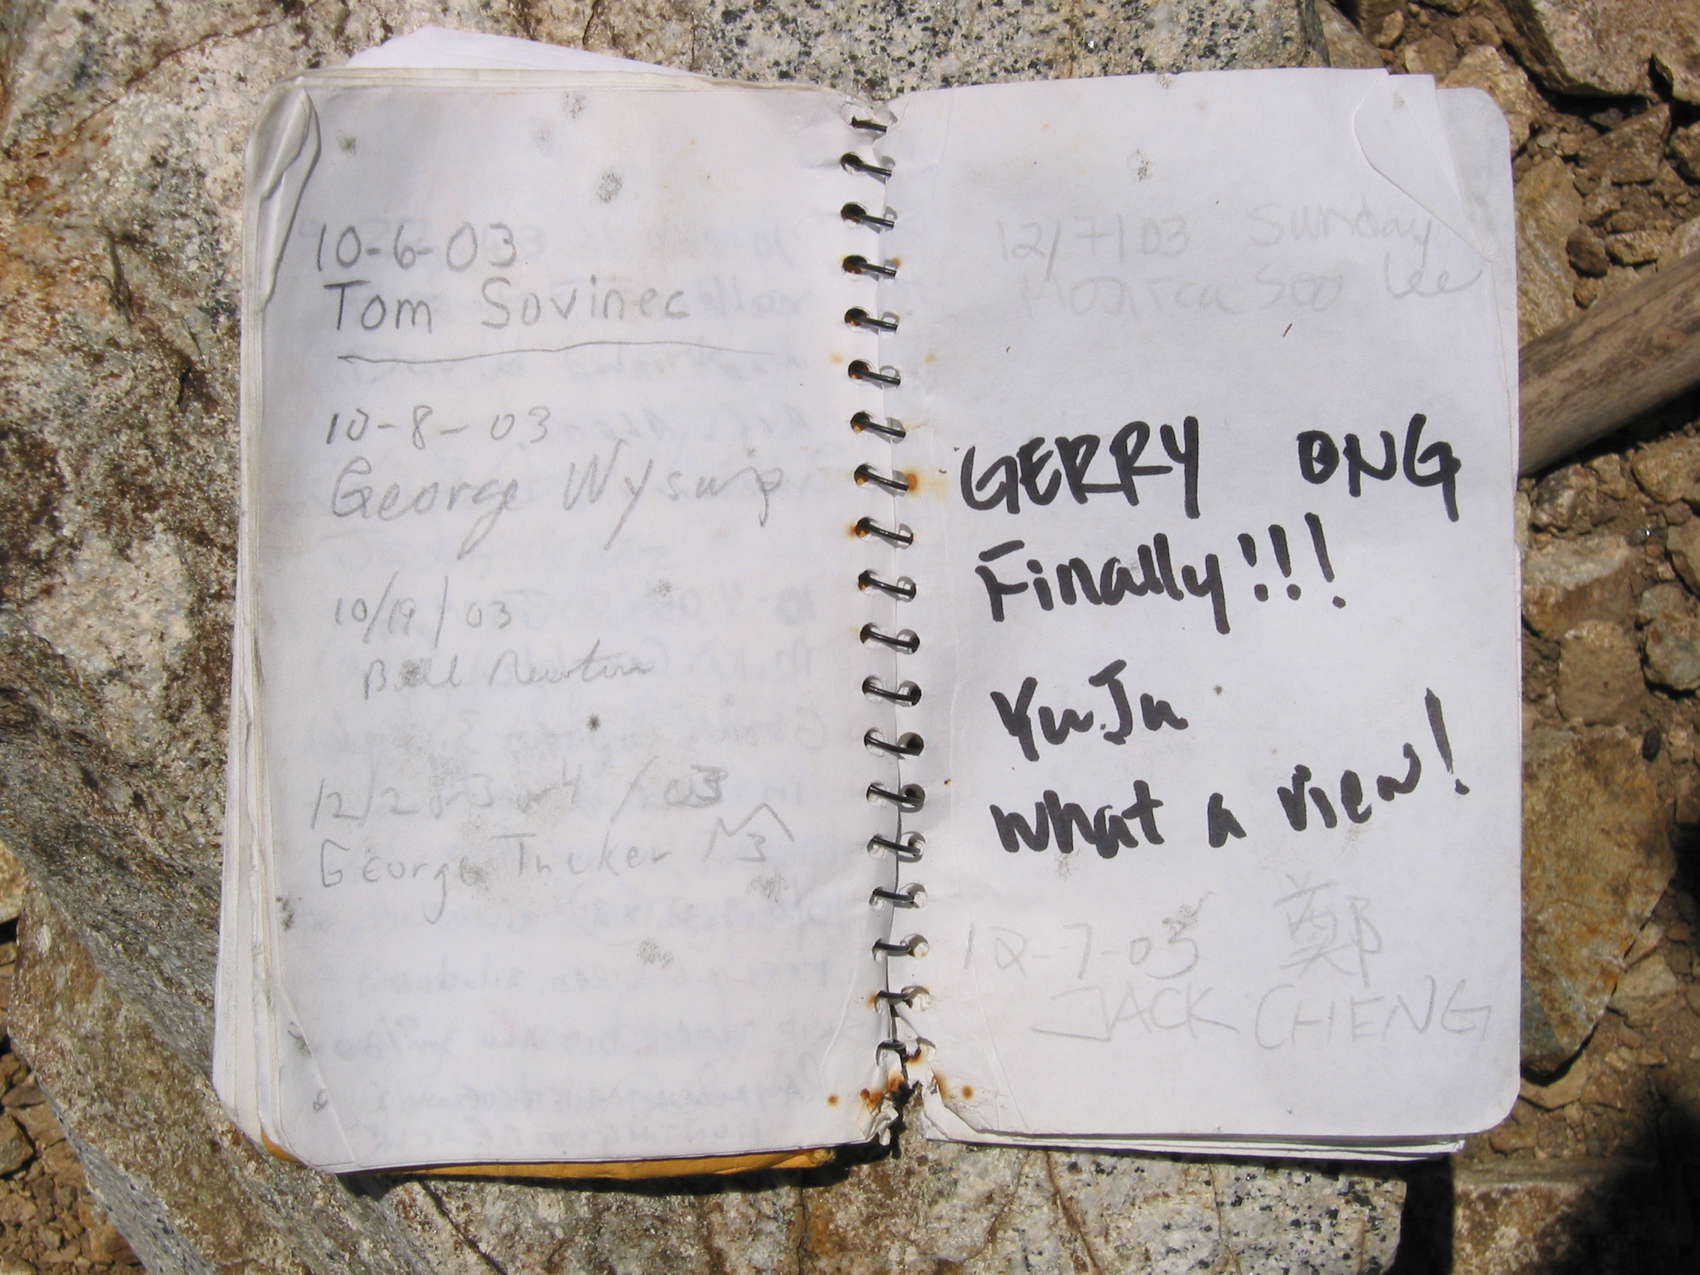 10-6-03
Tom Sovinec
10-8-03
George
10/19/03
Bill Newton
12/2 or 3 or 4 /03
George Tucker
12/7/03 Sunday
Soo Lee
GERRY ONG
Finally!!!
YuJu
What a view!
12-7-03 鄭
JACK CHENG